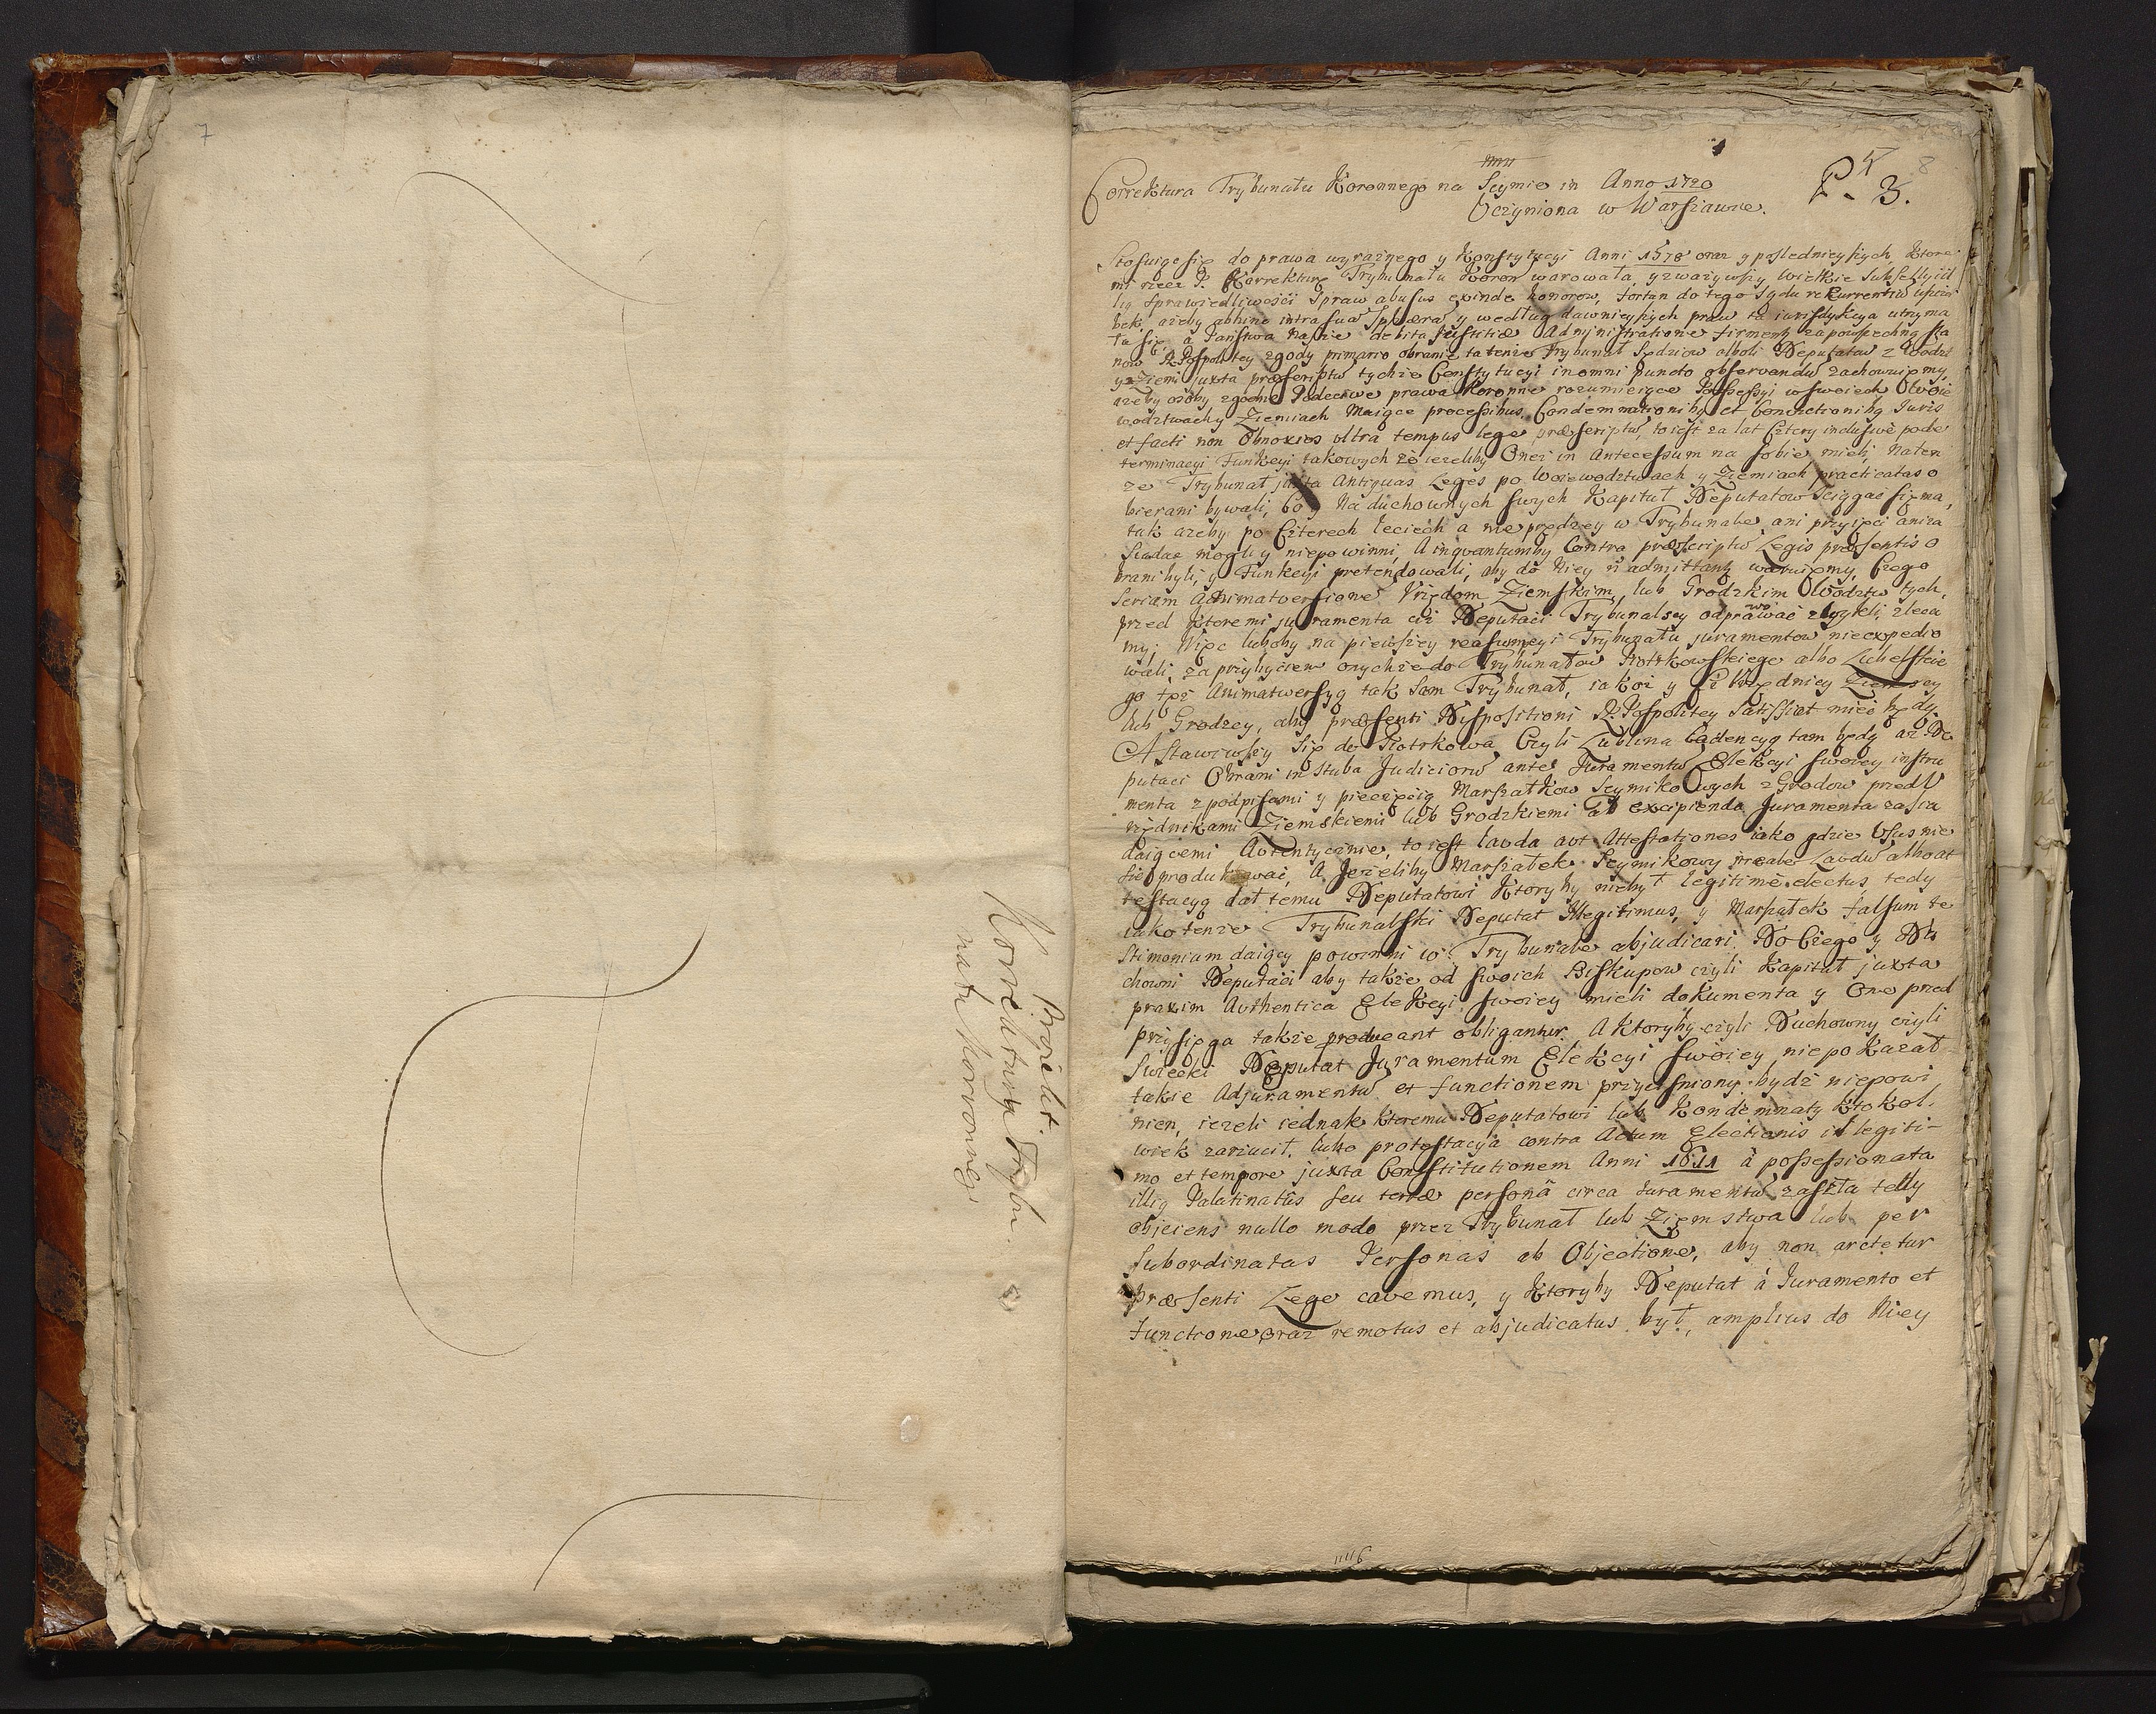 7
Proiekt.
Korrektura Trybu-
nału koronnego
8
P. 3.
Correktura Trybunału Koronnego na Seymie in Anno 1720
Uczyniona w Warszawie.
Stosuiąc się do prawa wyraźnego y Konstytucyi Anni 1578 oraz y poslednieyszych, ktore
mi rzecz P. Korrekturę Trybunału Koron warowała, y zwazywszy wielkie
lig sprawiedliwości spraw abusus exinde honorow, do tego Sądu
bek, azeby abhinc intra sua Sphæra y według dawnieyszych praw ta iurisdykcya utrzyma
ła się, a Państwa Nasze debita Justitiæ Administratione zapowszechną Sta
now R Pospolitey zgody primario obranie tatenze Trybunał Sędziow alboli Deputatow z Woodz
y Ziemi juxta præscriptu tychze Constytucyi in omni puncto observandu zachowuiemy,
azeby osoby zgodne Podeciwe prawa Koronne rozumieiące Possessyi w swoich Woie
wodztwach y Ziemiach Maiące processibus, Condemnationibq et Convictionibq Juris
et facti non Obnoxios ultra tempus lege præscriptu, to iest za lat Cztery inclusivè po de
terminacyi Funkcyi takowych ze iezeliby Onei in Antecessum na sobie mieli, Naten
ze Trybunał juxta Antiquas Leges po Woiewodztwach y Ziemiach practicatas o
bierani bywali, Co y Na duchownych swych Kapituł Deputatow ściągac się ma,
tak azeby po Czterech leciech a nie prędzey w Trybunale ani przyięci ani za
siadac mogli y niepowinni, A inquantumby Contra præscriptu Legis præsentis o
brani byli, y Funkcyi pretendowali, aby do Niey ñ admittantq waruiemy, Czego
seriam Animatversione Urzędom Ziemskim lub Grodzkim Wodztw tych,
przed ktoremi juramenta ciz Deputaci Trybunalscy odprawowac zwykli, zleca
my; Więc luboby na pierwszey reasumcyi Trybunału juramentow nieexpedio
wali, zaprzybyciem onychze do Trybunałow Piotrkowskiego albo Lubelskie
go tęz Animatwersyą tak Sam Trybunał, iakoz y Ci Urzędnicy Ziemscy
lub Grodzcy, aby præsenti Dispositioni R Pospolitey Satisfiat mieć będą.
A Stawiwszy się do Piotrkowa Czyli Lublina Cadencyą tam będą ciz De
putaci Obrani in Stuba Judiciorw ante Juramentu Elekcyi swoiey instru
menta z podpisami y pieczęcią Marszałkow Seymikowych z Grodow przed U
rzędnikami Ziemskiemi lub Grodzkiemi Ad excipienda Juramenta zasia
daiącemi Avtentycznie, to iest lavda avt Attestationes iako gdzie Usus nie
sie produkowac, A Jezeliby Marszałek Seymikowy Lavdu albo at
testacyą dał temu Deputatowi Ktoryby niebył legitimè electus, tedy
iako tenze Trybunalski Deputat Illegitimus, y Marszałek falsum te
stimonium daiący powinni w Trybunale abjudicari. Do Czego y Du
chowni Deputaci aby takze, od swoich Biskupow czyli Kapituł juxta
praxim Avthentica Elekcyi swoiey mieli dokumenta y One przed
przysięga takze producant obligantur. A ktoryby czyli Duchowny czyli
Swiecki Deputat Juramentum Elekcyi swoiey nie pokazał
takie Adjuramentu et functionem przycisniony bydz niepowi
nien, iezeli iednak ktoremu Deputatowi lub Kondemnaty Ktokol-
wiek zarzucił, lubo protestacyja contra Actum Electionis illegiti-
mo et tempore juxta Constitutionem Anni 1611 à possessionata
illiq Palatinatûs seu terræ personâ circa Juramentu zaszła tedy
objiciens nullo modo przez Trybunał lub Ziemstwa lub per
subordinatas Personas ab Objectione, aby non arctetur
Præsenti Lege cavemus, y Ktoryby Deputat à Juramento et
Functione oraz remotus et abjudicatus był, amplius do Niey